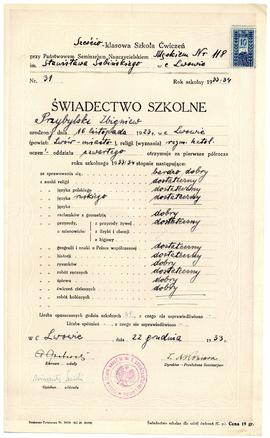 Sześcio-klasowa Szkoła Ćwiczeń
przy Państwowem Seminarjum Nauczycielskiem Męskiem Nr
im. Stanisława Sobińskiego we Lwowie
Nr. 31 Rok szkolny 1933/34
ŚWIADECTWO SZKOLNE
Przybylski Zbigniew
urodzony dnia 16 listopada 1923 we Lwowie
(powiat: Lwów-miasto) religji (wyznania) rzym. katol.
uczeń oddziału czwartego otrzymuje za pierwsze półrocze
roku szkolnego 1933/34 stopnie następujące:
za sprawowanie się bardzo dobry
z nauki religji dostateczny
języka polskiego dostateczny
języka ruskiego dostateczny
języka
rachunków z geometrją dobry
przyrody z przyrody żywej dostateczny
a mianowicie: z fizyki i chemji dobry
z higjeny
geografji i nauki o Polsce współczesnej dostateczny
historji dostateczny
rysunków dobry
robót ręcznych dostateczny
śpiewu dostateczny
ćwiczeń cielesnych dobry
robót kobiecych
Liczba opuszczonych godzin szkolnych z czego nie usprawiedliwiono
Liczba spóźnień z czego nie usprawiedliwiono
We Lwowie dnia 22 grudnia 1933
Kierownik szkoły
Dyrektor Państwowego Seminarjum
Opiekun oddziału
Cena 19 gr.